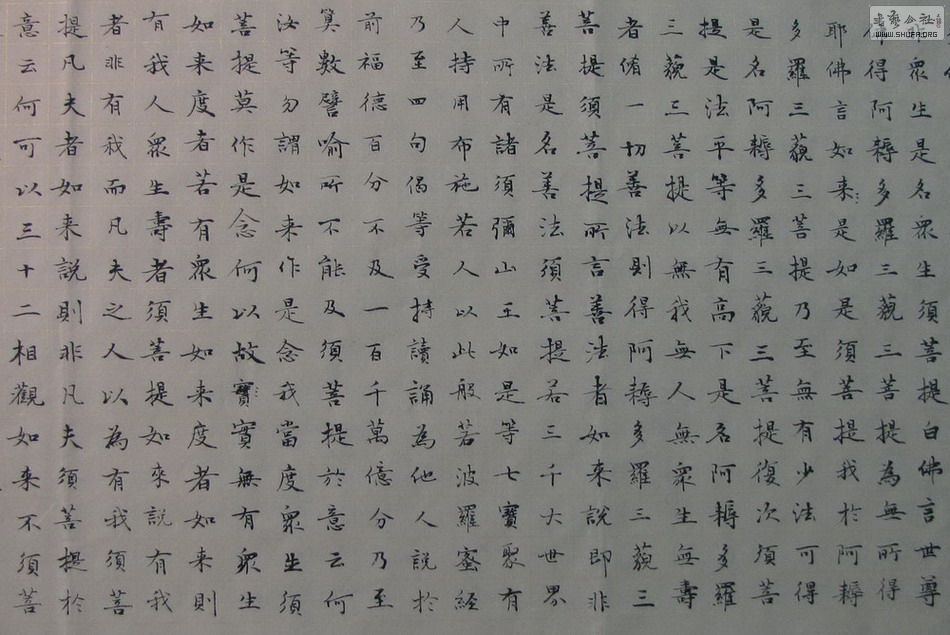 衆生是名衆生須菩提白佛言世尊
得阿耨多羅三藐三菩提為無所得
耶佛言如来是如是須菩提我於阿耨
多羅三藐三菩提乃至無有少法可得
是名阿耨多羅三藐三菩提復次須菩
提是法平等無有高下是名阿耨多羅
三藐三菩提以無我無人無衆生無壽
者脩一切善法則得阿耨多羅三藐三
菩提須菩提所言善法者如来說即非
善法是名善法須菩提若三千大世界
中所有諸須彌山王如是等七寶聚有
人持用布施若人以此般若波羅蜜經
乃至四句偈等受持讀誦為他人說於
前福德百分不及一百千萬億分乃至
算數譬喻所不能及須菩提於意云何
汝等勿謂如来作是念我當度衆生須
菩提莫作是念何以故寶實無有衆生
如来度者若有衆生如来度者如来則
有我人衆生壽者須菩提如來說有我
者非有我而凡夫之人以為有我須菩
提凡夫者如来說則非凡夫須菩提於
意云何可以三十二相觀如来不須菩
WWW.SHUFA.ORG